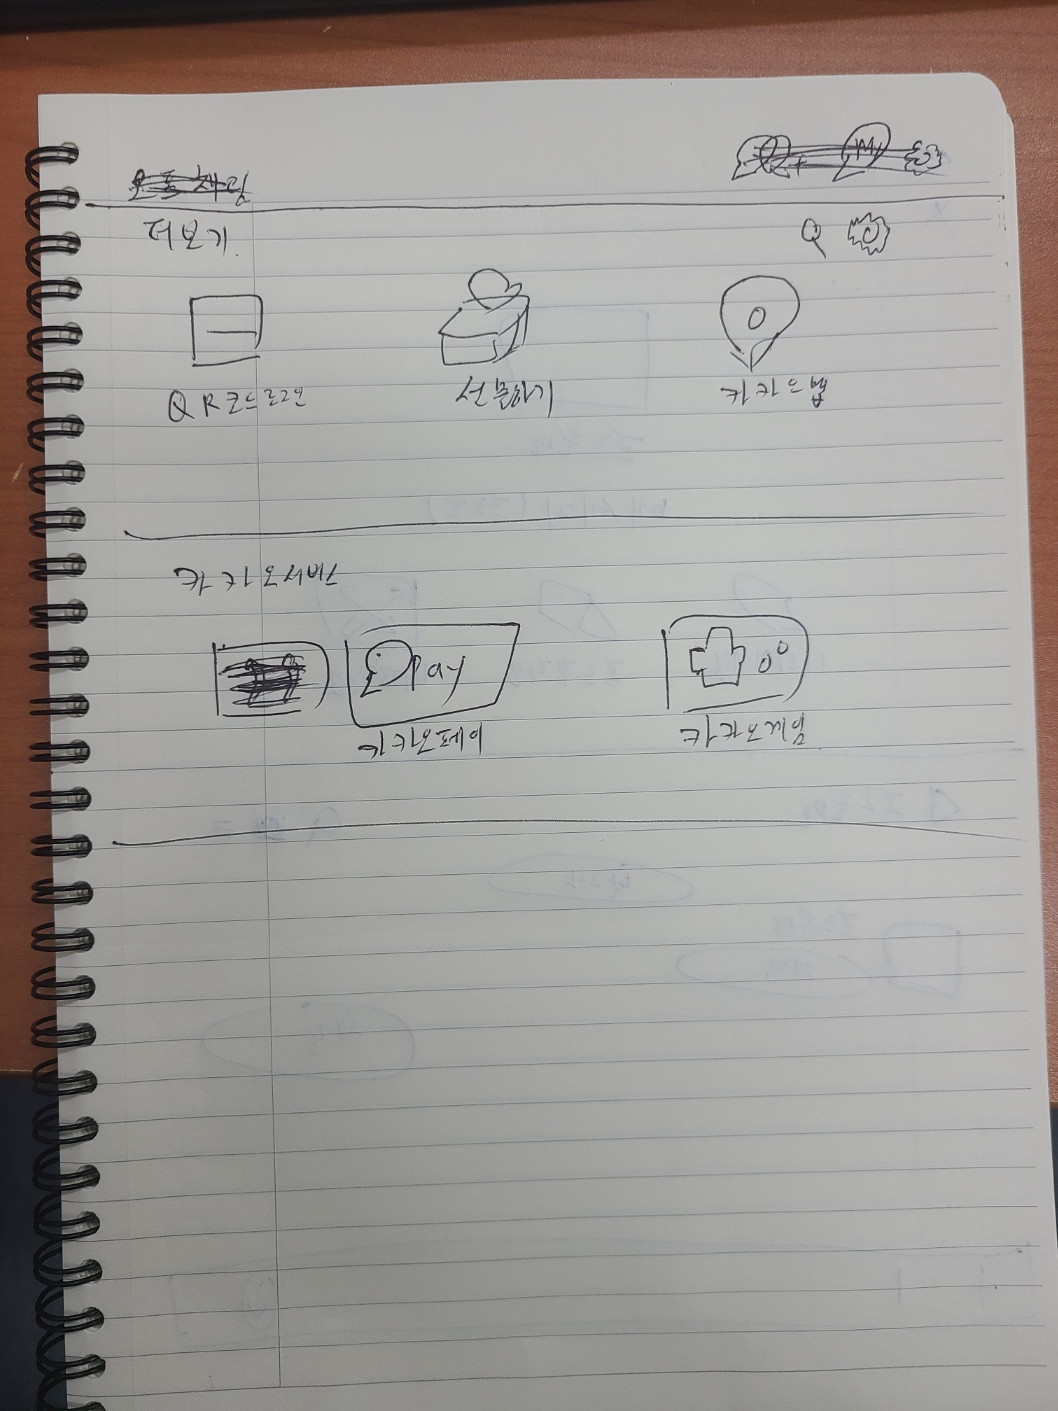 더보기
QR코드로그인 선물하기 카카오맵
카카오서비스
pay
카카오페이 카카오